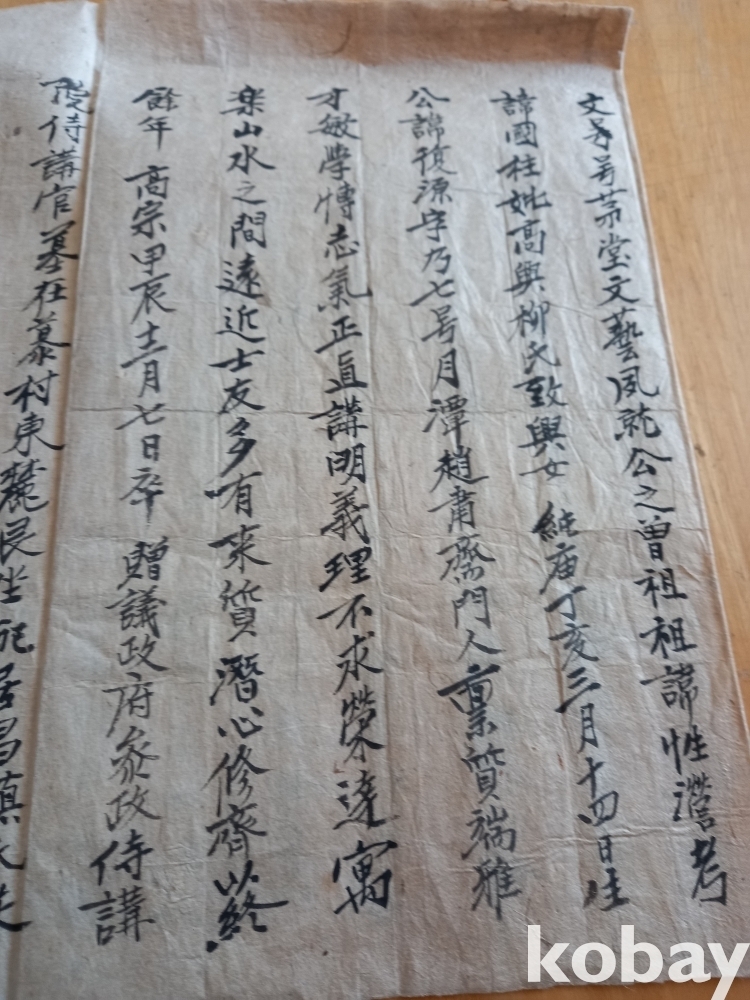 文 号茅堂文藝夙就公之曾祖祖諱性澔考
諱國柱妣高興柳氏致興女 純庙丁亥三月十四日生
公諱復源字乃七号月潭趙肅齋門人禀質端雅
才敏学博志氣正直講明義理不求榮達寓
楽山水之間遠近士友多有来質潛心修齊以終
餘年 高宗甲辰十二月七日卒 贈議政府参政侍講
院侍講官墓在 村東麓艮坐 昌 氏
kobay